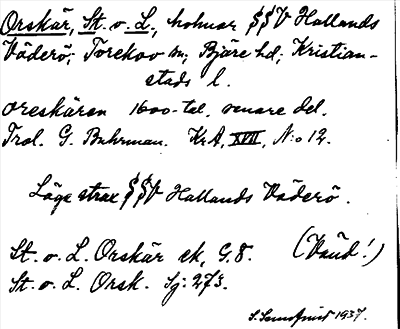 Orskär, St. o. L., holmar SSV Hallands
Väderö; Torekov sn; Bjäre hd, Kristian-
stads l.
oreskären 1600-tal, senare del.
Trol. G. Buhrman. KrA, XVII, N:o 12.
Läge strax SSV Hallands Väderö.
St. o. L. Orskär ek, G.8. (Vänd!)
St. o. L. Orsk. Sj: 273.
1937.